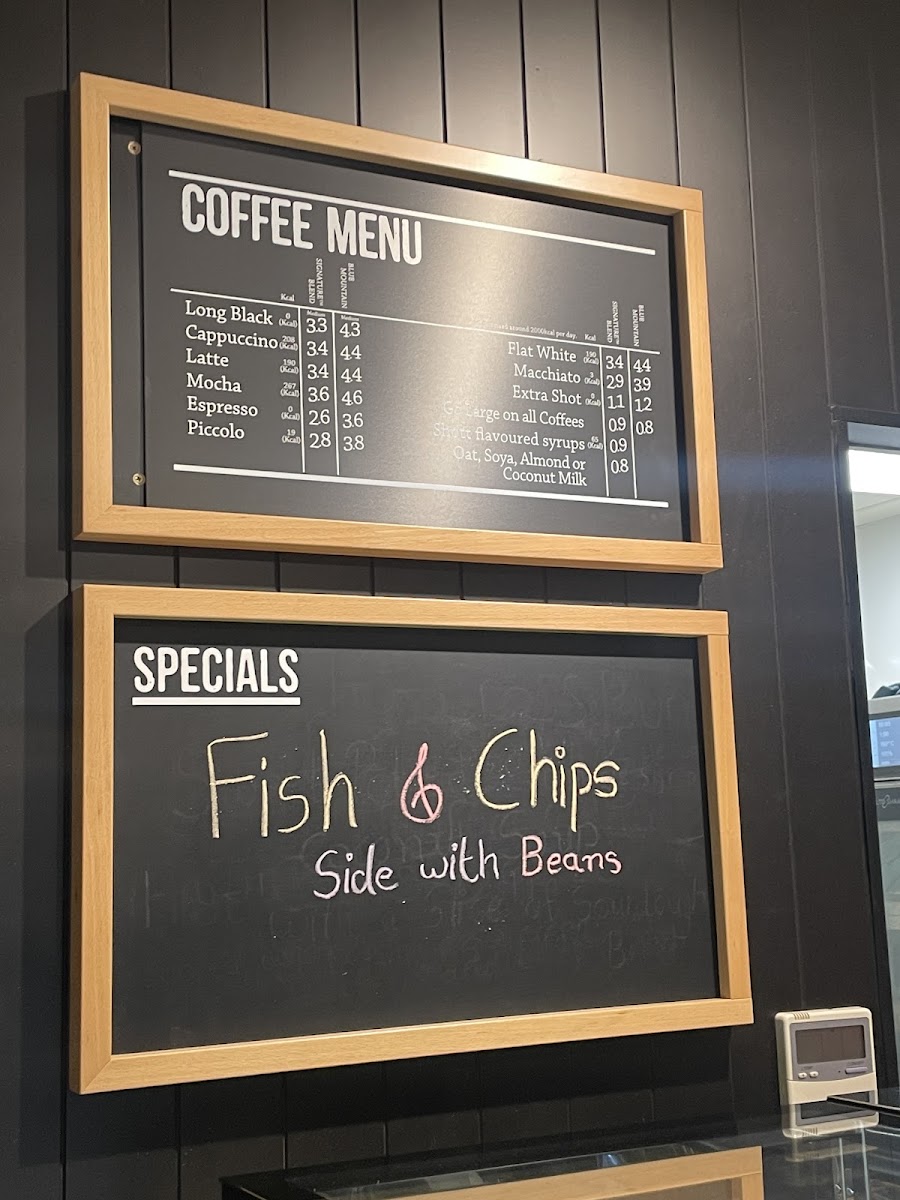 COFFEE MENU
Kcal SIGNATURE™ BLEND BLUE MOUNTAIN
Medium Medium
Long Black 0 (Kcal) 3.3 4.3
Cappuccino 208 (Kcal) 3.4 4.4
Latte 190 (Kcal) 3.4 4.4
Mocha 267 (Kcal) 3.6 4.6
Espresso 0 (Kcal) 2.6 3.6
Piccolo 19 (Kcal) 2.8 3.8
around 2000kcal per day. Kcal SIGNATURE™ BLEND BLUE MOUNTAIN
Flat White 190 (Kcal) 3.4 4.4
Macchiato 3 (Kcal) 2.9 3.9
Extra Shot 0 (Kcal) 1.1 1.2
Large on all Coffees 0.9 0.8
flavoured syrups 65 (Kcal) 0.9
Oat, Soya, Almond or 0.8
Coconut Milk
SPECIALS
Fish & Chips
Side with Beans